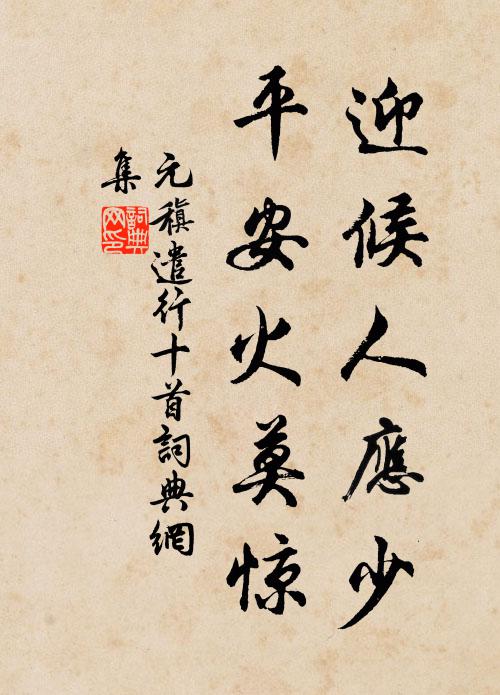 迎候人應少
平安火莫惊
元稹遣行十首詞典網
集
詞典网印